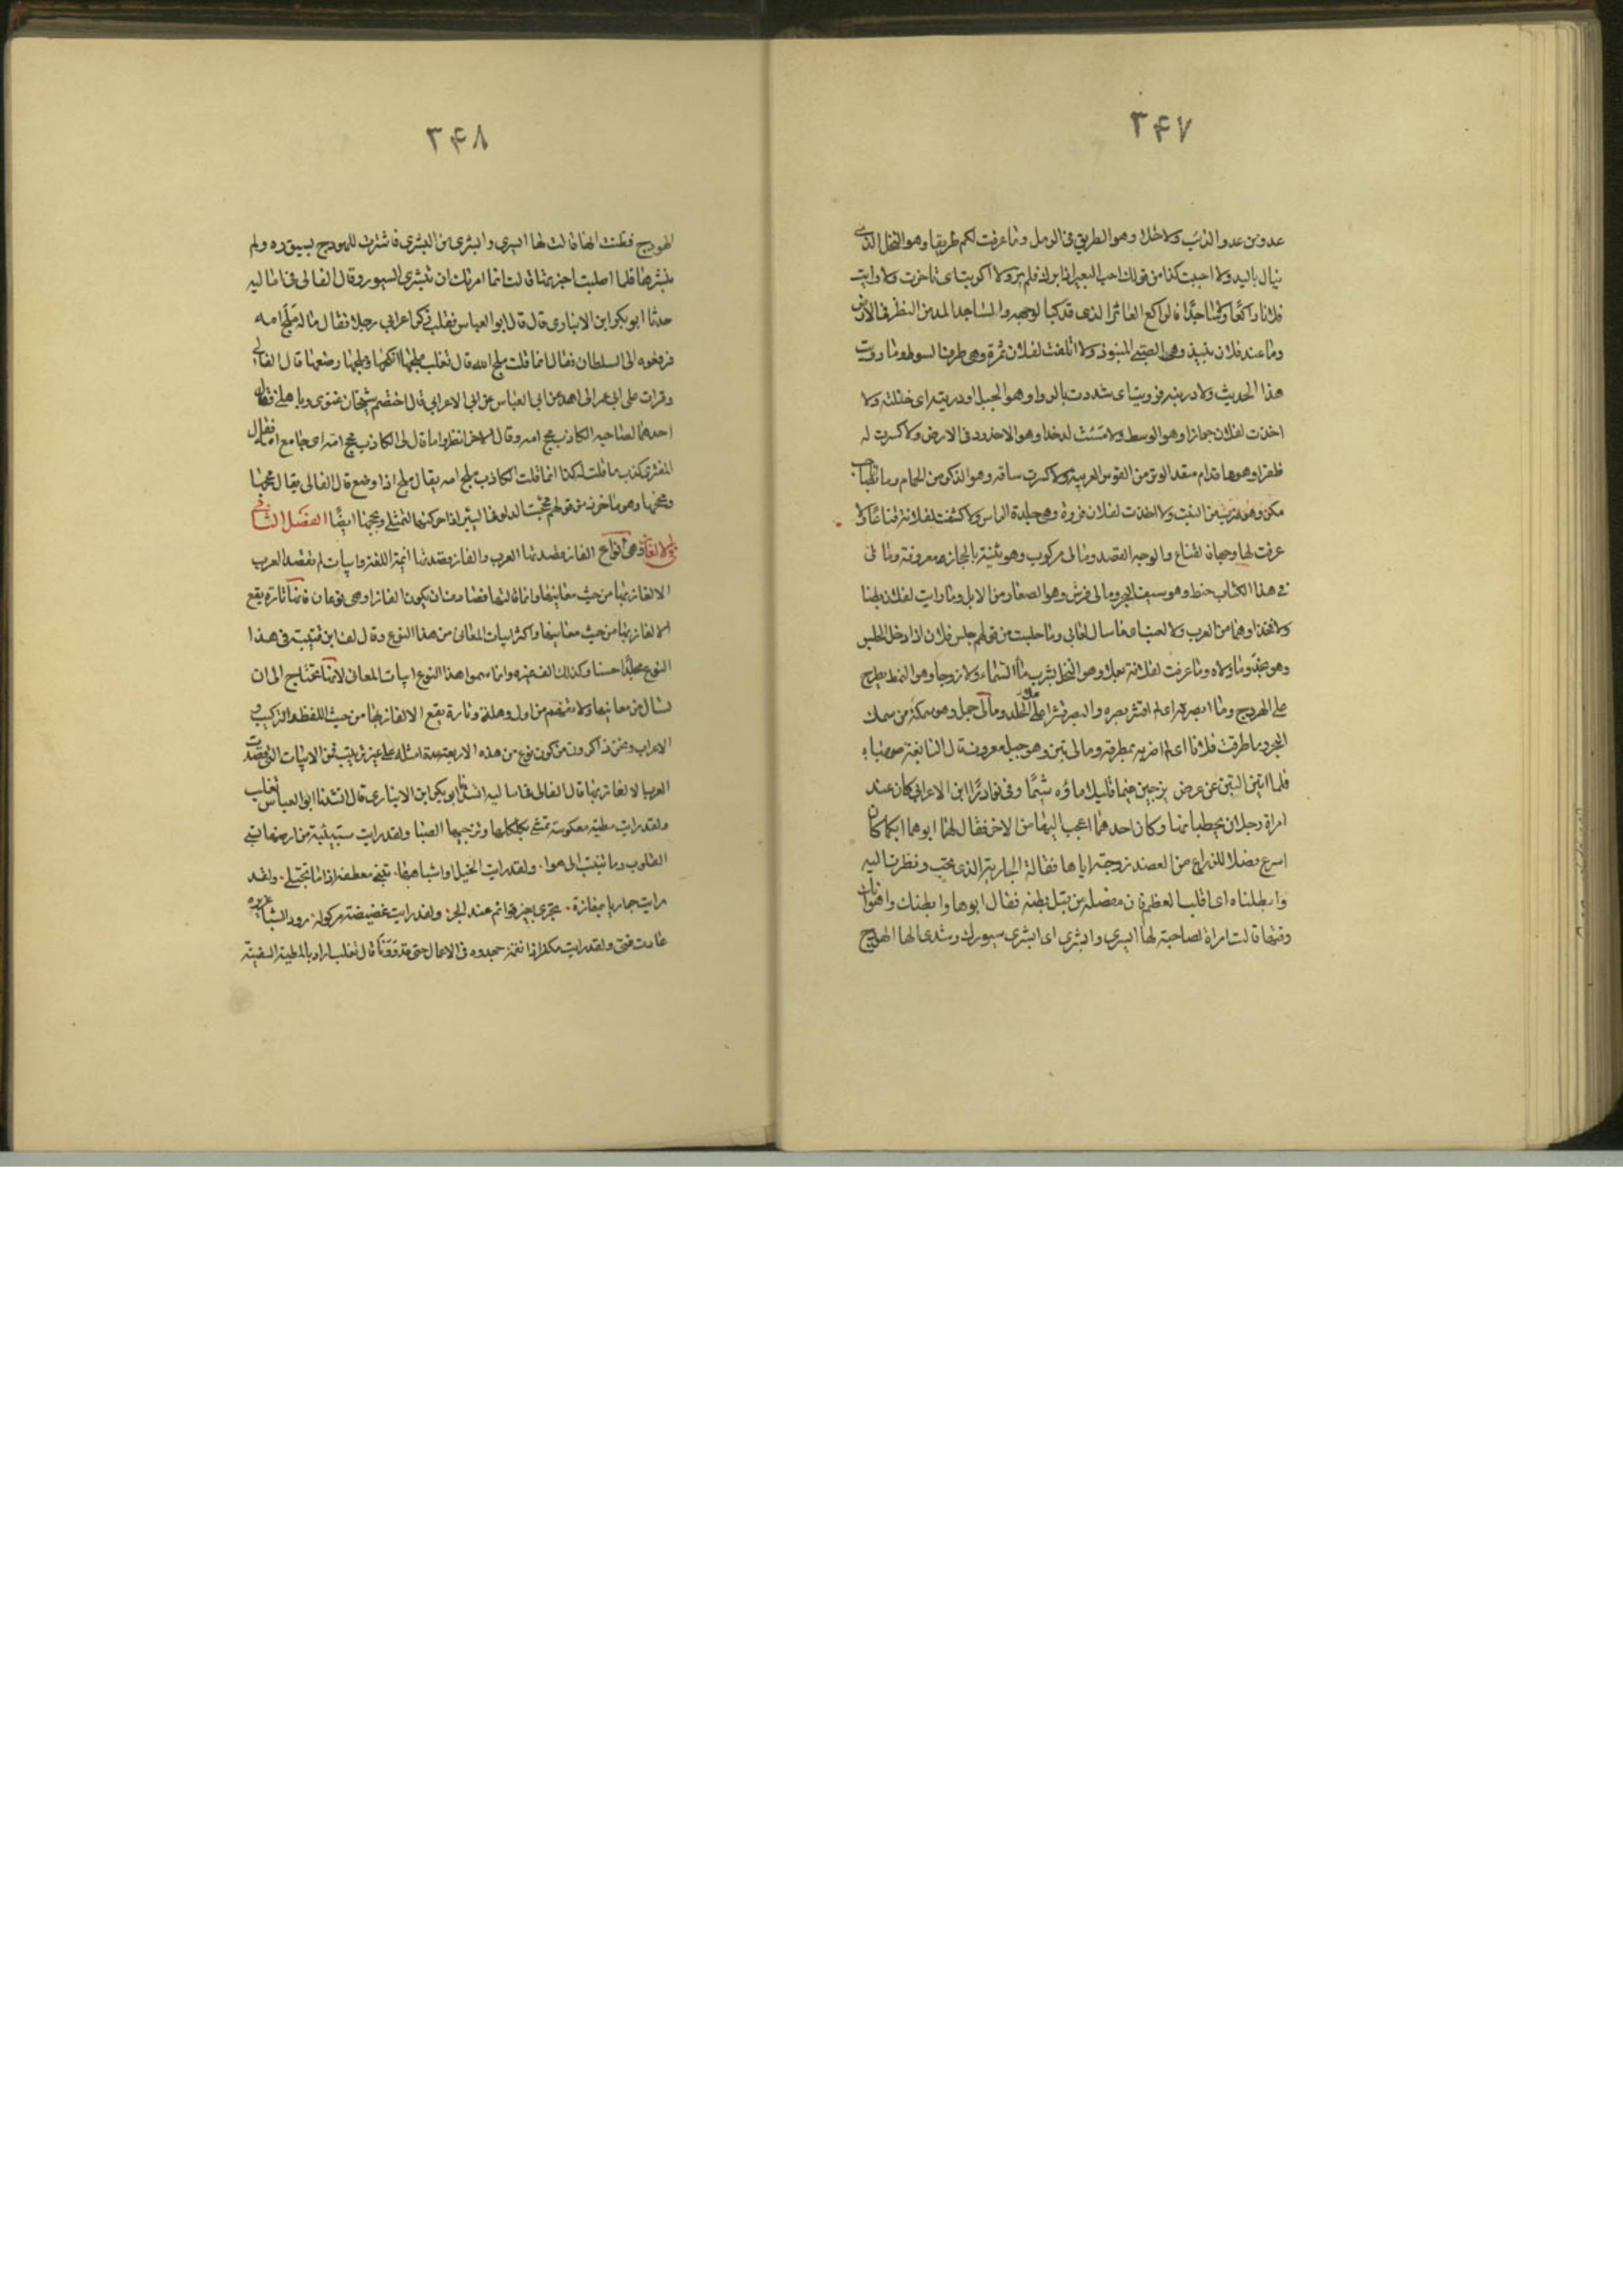 ٣۴٧
عدو من عدو الذئب ولا خلا وهو الطريق فى الرمل وما عرفت لكم طريقا وهو النخل الذى
ينال باليد ولا احببت كذا من قولك احب البعير اذا برك فلم يثر ولا اكريت اى تاخرت ولا رايت
فلانا راكعا ولا ساجدا فالراكع العاثر الذى قد كبا لوجهه والساجد المدمن النظر فى الارض
وما عند فلان نبيذ وهو الصبى المنبوذ ولا اتلفت لفلان ثمرة وهى طرف السوط وما رويت
هذا الحديث ولا دريته فرويت اى شددت بالروا وهو الحبل ودريته اى ختلته ولا
اخذت لفلان جوزا وهو الوسط ولا مسست له خدا وهو الاخدود فى الارض ولا كسرت له
ظفرا وهو ما قدام معقد الوتر من القوس العربية ولا كسرت ساقه وهو الذكر من الحمام وما
مكر وهو ضرب من النبت ولا اخذت لفلان فروة وهى جلدة الراس ولا كشفت لفلانة قناعا ولا
عرفت لها وجها فالقناع والوجه القصد ومالى مركوب وهو ثنية بالحجاز معروفة ومالى
فى هذا الكتاب خط وهو سيف البحر ومالى فرش وهو الصغار من الابل وما رايت لفلان بطنا
ولا فخذا وهما من العرب ولا العب اى ما سال لعابى وما جلست من قولهم جلس فلان اذا دخل الجلس
وهو نجد وما والاه وما عرفت لفلانة بعلا وهو النخل يشرب ماء السماء ولا زوجا وهو النمط يطرح
على الهودج وما ابصرته اى لم اقشر بصره والبصر قشر اعلى الجلد ومالى جمل وهو سمكة من سمك
البحر وما طرقت فلانا اى لم اضربه بمطرقة ومالى تين وهو جبل معروف قال النابغة صهبا
فلما اتين التين عن عرض يزجين غيما قليلا ماؤه شبما وفى نوادر ابن الاعرابى كان عند
امراة رجلان يخطبانها وكان احدهما اعجب اليها من الاخر فقال لهما ابوهما ايكما كان
اسرع فصلا للذراع من العضد زوجته اياها فقالت الجارية للذى تحب ونظرت اليه
وابطناه اى اقلب العظم فان مفصله من قبل بطنه فقال ابوها وابطنك وا
وفيها قالت امراة لصاحبة لها ايسرى وابشرى اى ابشرى سيورك وشدى لها الهودج
٣۴٨
الهودج فظنت انها قالت لها ايسرى وابشرى من البشرى فاشترت للهودج بسيوره ولم
تبشرها فلما اصلبت اجزعتها قالت انما امرتك ان تبشرى السيور وقال القالى فى اماليه
حدثنا ابو بكر ابن الانبارى قال قال ابو العباس ثعلب ذكر اعرابى رجلا فقال ماله ملج امه
فرفعوه الى السلطان فقال انما قلت ملج امه قال ثعلب ملجها نكحها وملجها رضعها قال القالى
وقرات على ابى عمر الزاهد عن ابى العباس عن ابن الاعرابى قال اختصم شيخان غنوى وباهلى فقال
احدهما لصاحبه الكاذب محج امه وقال الاخر انظروا ما قال لى الكاذب محج امه اى جامع امه فقال
الغنوى كذب ما قلت له كذا انما قلت الكاذب ملج امه يقال ملج اذا رضع قال القالى يقال محجها
ومخجها وهو ماخوذ من قولهم مخجت الدلو فى البئر اذا حركتها لتمتلى ومحجها ايضا الفصل الثانى
فى الالغاز وهى انواع الغاز قصدتها العرب والغاز قصدتها ائمة اللغة وابيات لم تقصد العرب
الالغاز بها من حيث معانيها وانما قالتها فصادف ان يكون الغازا وهى نوعان فانها تارة يقع
الالغاز بها من حيث معانيها واكثر ابيات المعانى من هذا النوع وقد الف ابن قتيبة فى هذا
النوع مجلدا حسنا وكذلك الف غيره وانما سموا هذا النوع ابيات المعانى لانها تحتاج الى ان
تسال عن معانيها ولا تفهم من اول وهلة وتارة يقع الالغاز بها من حيث اللفظ والتركيب و
الاعراب ونحن ذاكرون من كل نوع من هذه الاربعة عدة امثلة على غير ترتيب فمن الابيات التى قصدت
العرب الالغاز بها قال القالى فى اماليه انشدنا ابو بكر ابن الانبارى قال انشدنا ابو العباس ثعلب
ولقد رايت مطية معكوسة تمشى بكلكلها وتزجيها الصبا ولقد رايت سبيئة من ارضها تسبى
القلوب وما تنيب الى هوا. ولقد رايت الخيل او اشباهها. تثنى معطفة اذا ما تجتلى. ولقد
رايت جواريا بمفازة. تجرى بغير قوائم عند الجرا ولقد رايت غضيضة هركولة رود الشباب غريرة
عادت فتى ولقد رايت مكفرا ذا نعمة جهدوه فى الاعمال حتى قد ونا قال ثعلب اراد بالمطية السفينة